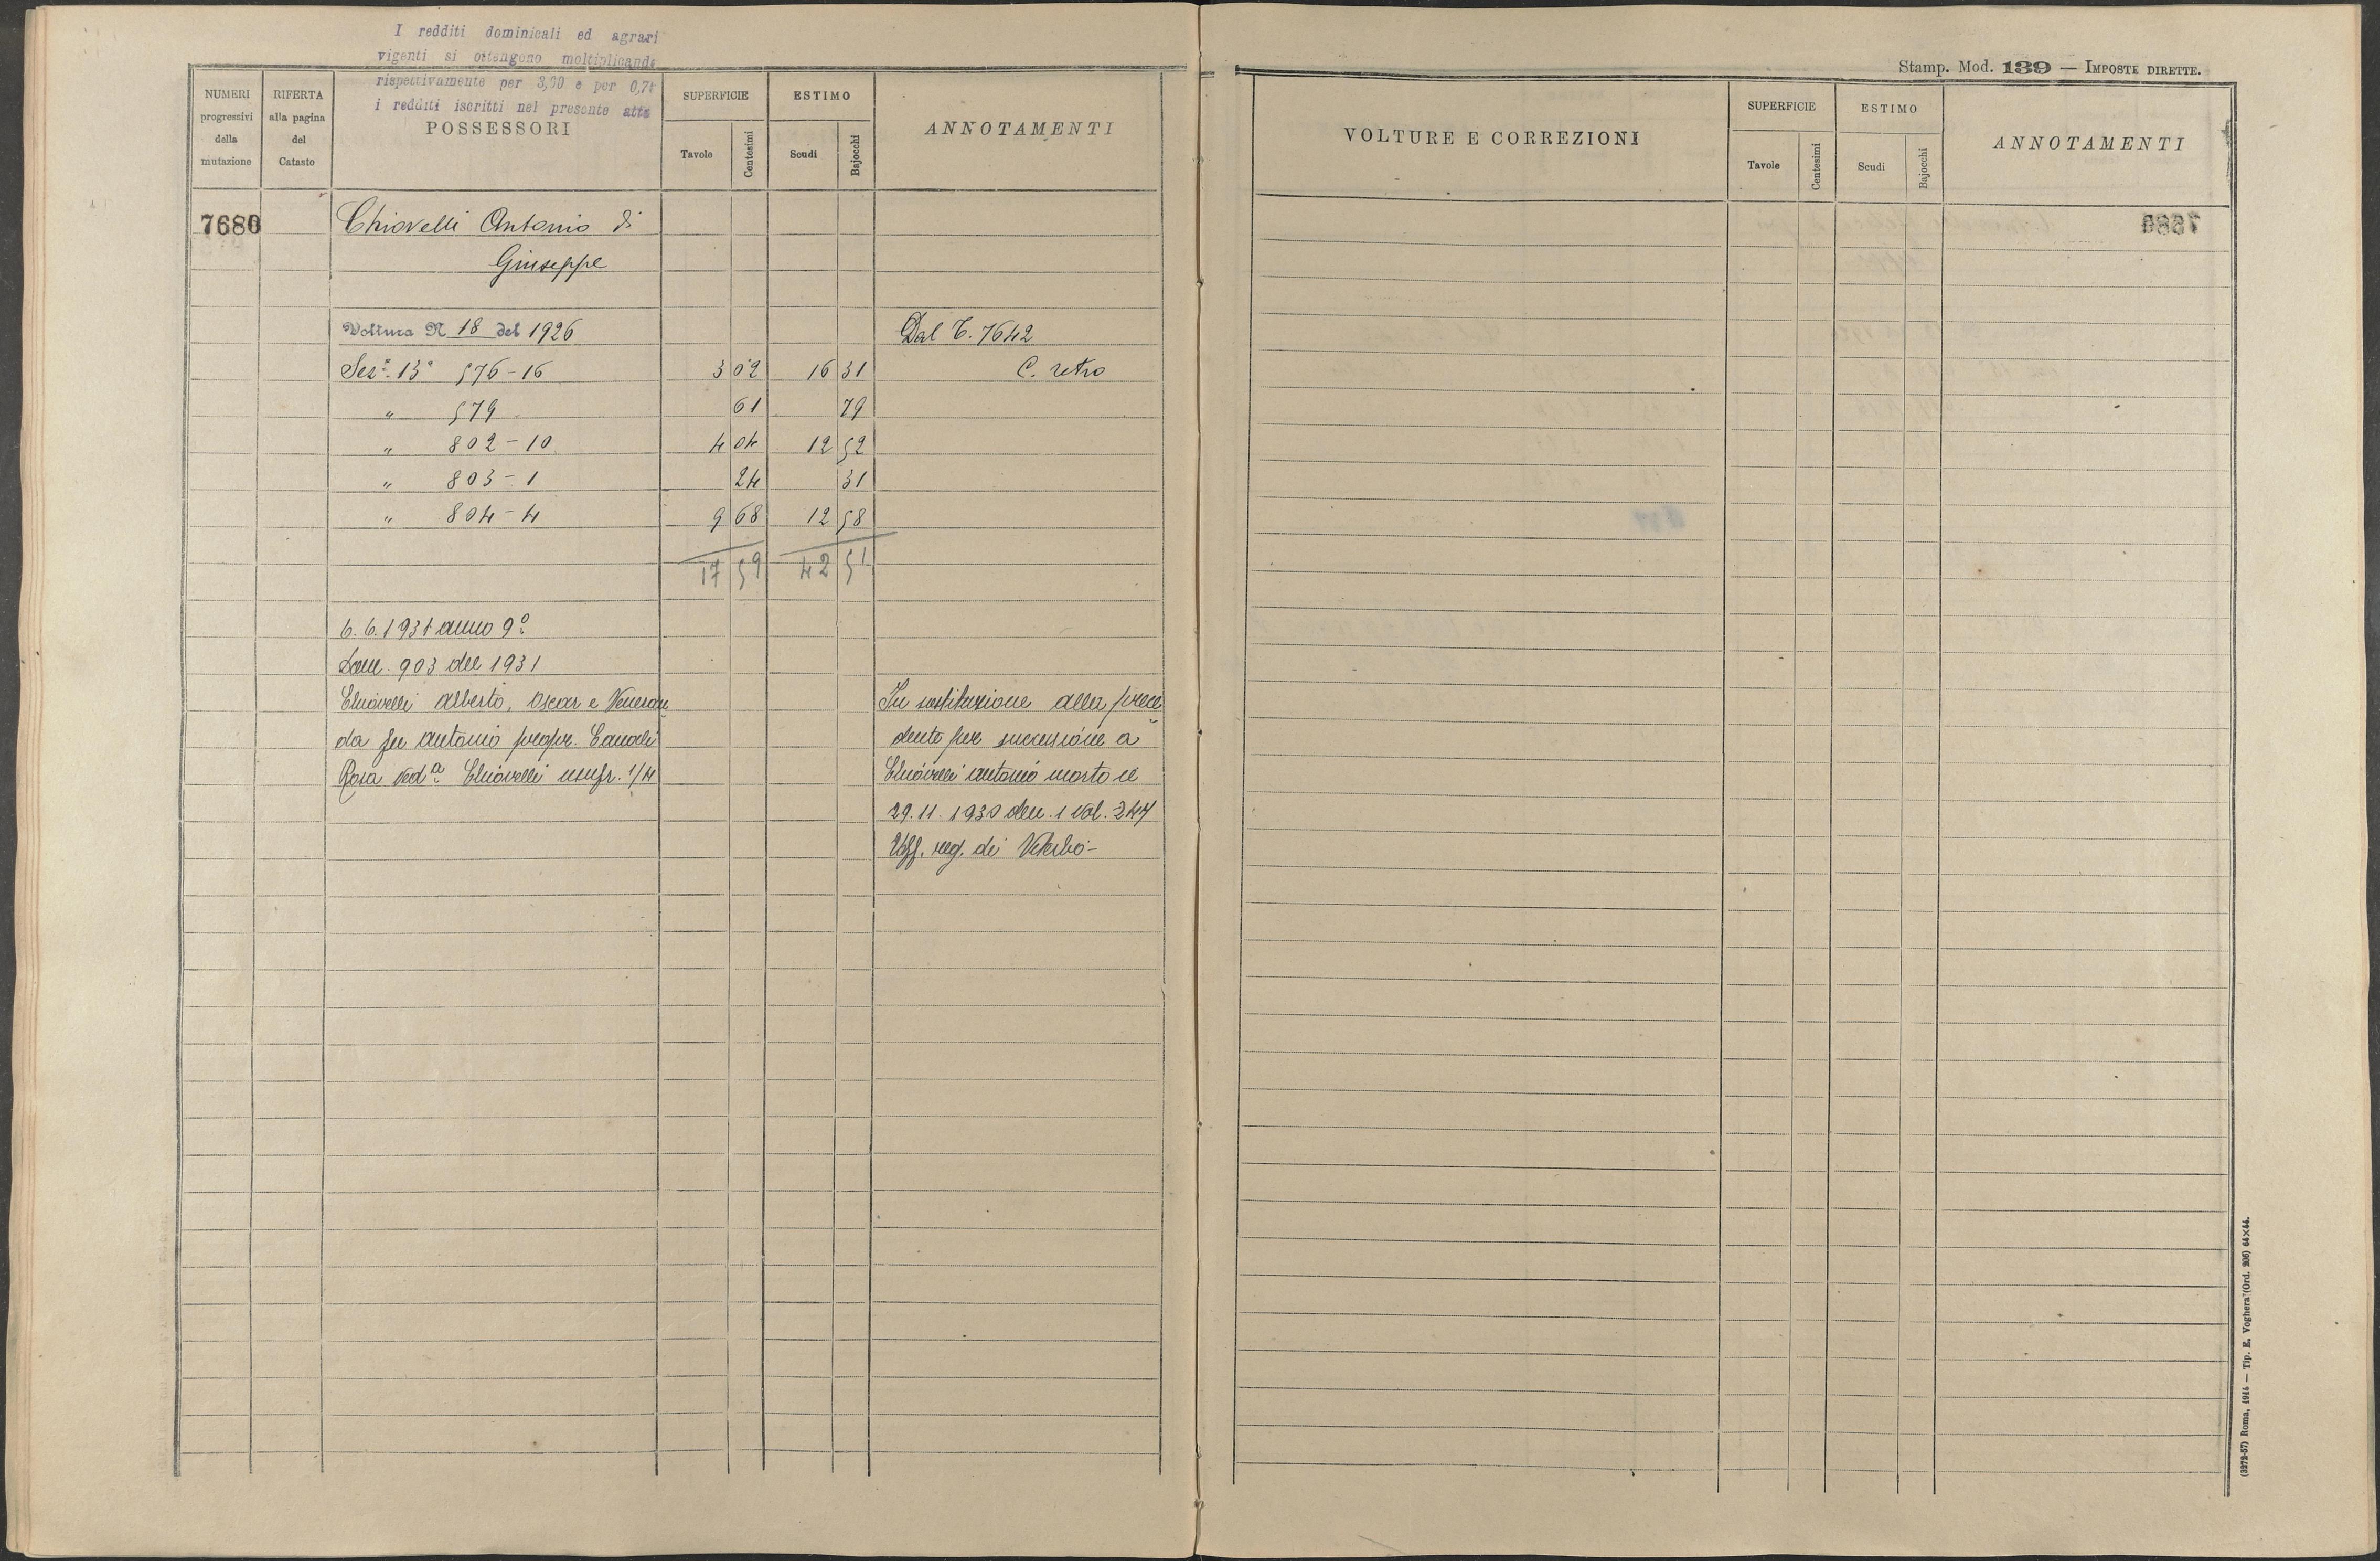 I redditi dominicali ed agrari
vigenti si ottengono moltiplicando
rispettivamente per 3,30 e per 0,74
i redditi iscritti nel presente atto
NUMERI
progressivi
della
mutazione
RIFERTA
alla pagina
del
Catasto
POSSESSORI
SUPERFICIE
Tavole
Centesimi
ESTIMO
Scudi
Bajocchi
ANNOTAMENTI
7680 Chiovelli Antonio di
Giuseppe
Voltura N 18 del 1926 Dal T. 7642
Sez. 13ª 576-16 3 02 16 31 C. retro
" 579 61 79
" 802-10 4 04 12 52
" 803-1 24 31
" 804-4 9 68 12 58
17 59 42 51
6. 6. 1931 anno 9º
903 del 1931
Chiovelli Alberto, Oscar e Veneran In sostituzione alla prece
da fu Antonio propr. Canali dente per successione a
Rosa ved.ª Chiovelli usufr. 1/4 Chiovelli Antonio morto il
29. 11. 1930 den. 1 vol. 247
Uff. reg. di Viterbo-
Stamp. Mod. 139 — IMPOSTE DIRETTE.
VOLTURE E CORREZIONI
SUPERFICIE
Tavole
Centesimi
ESTIMO
Scudi
Bajocchi
ANNOTAMENTI
(3272-57) Roma, 1914 — Tip. E. Voghera (Ord. 206) 64×44.